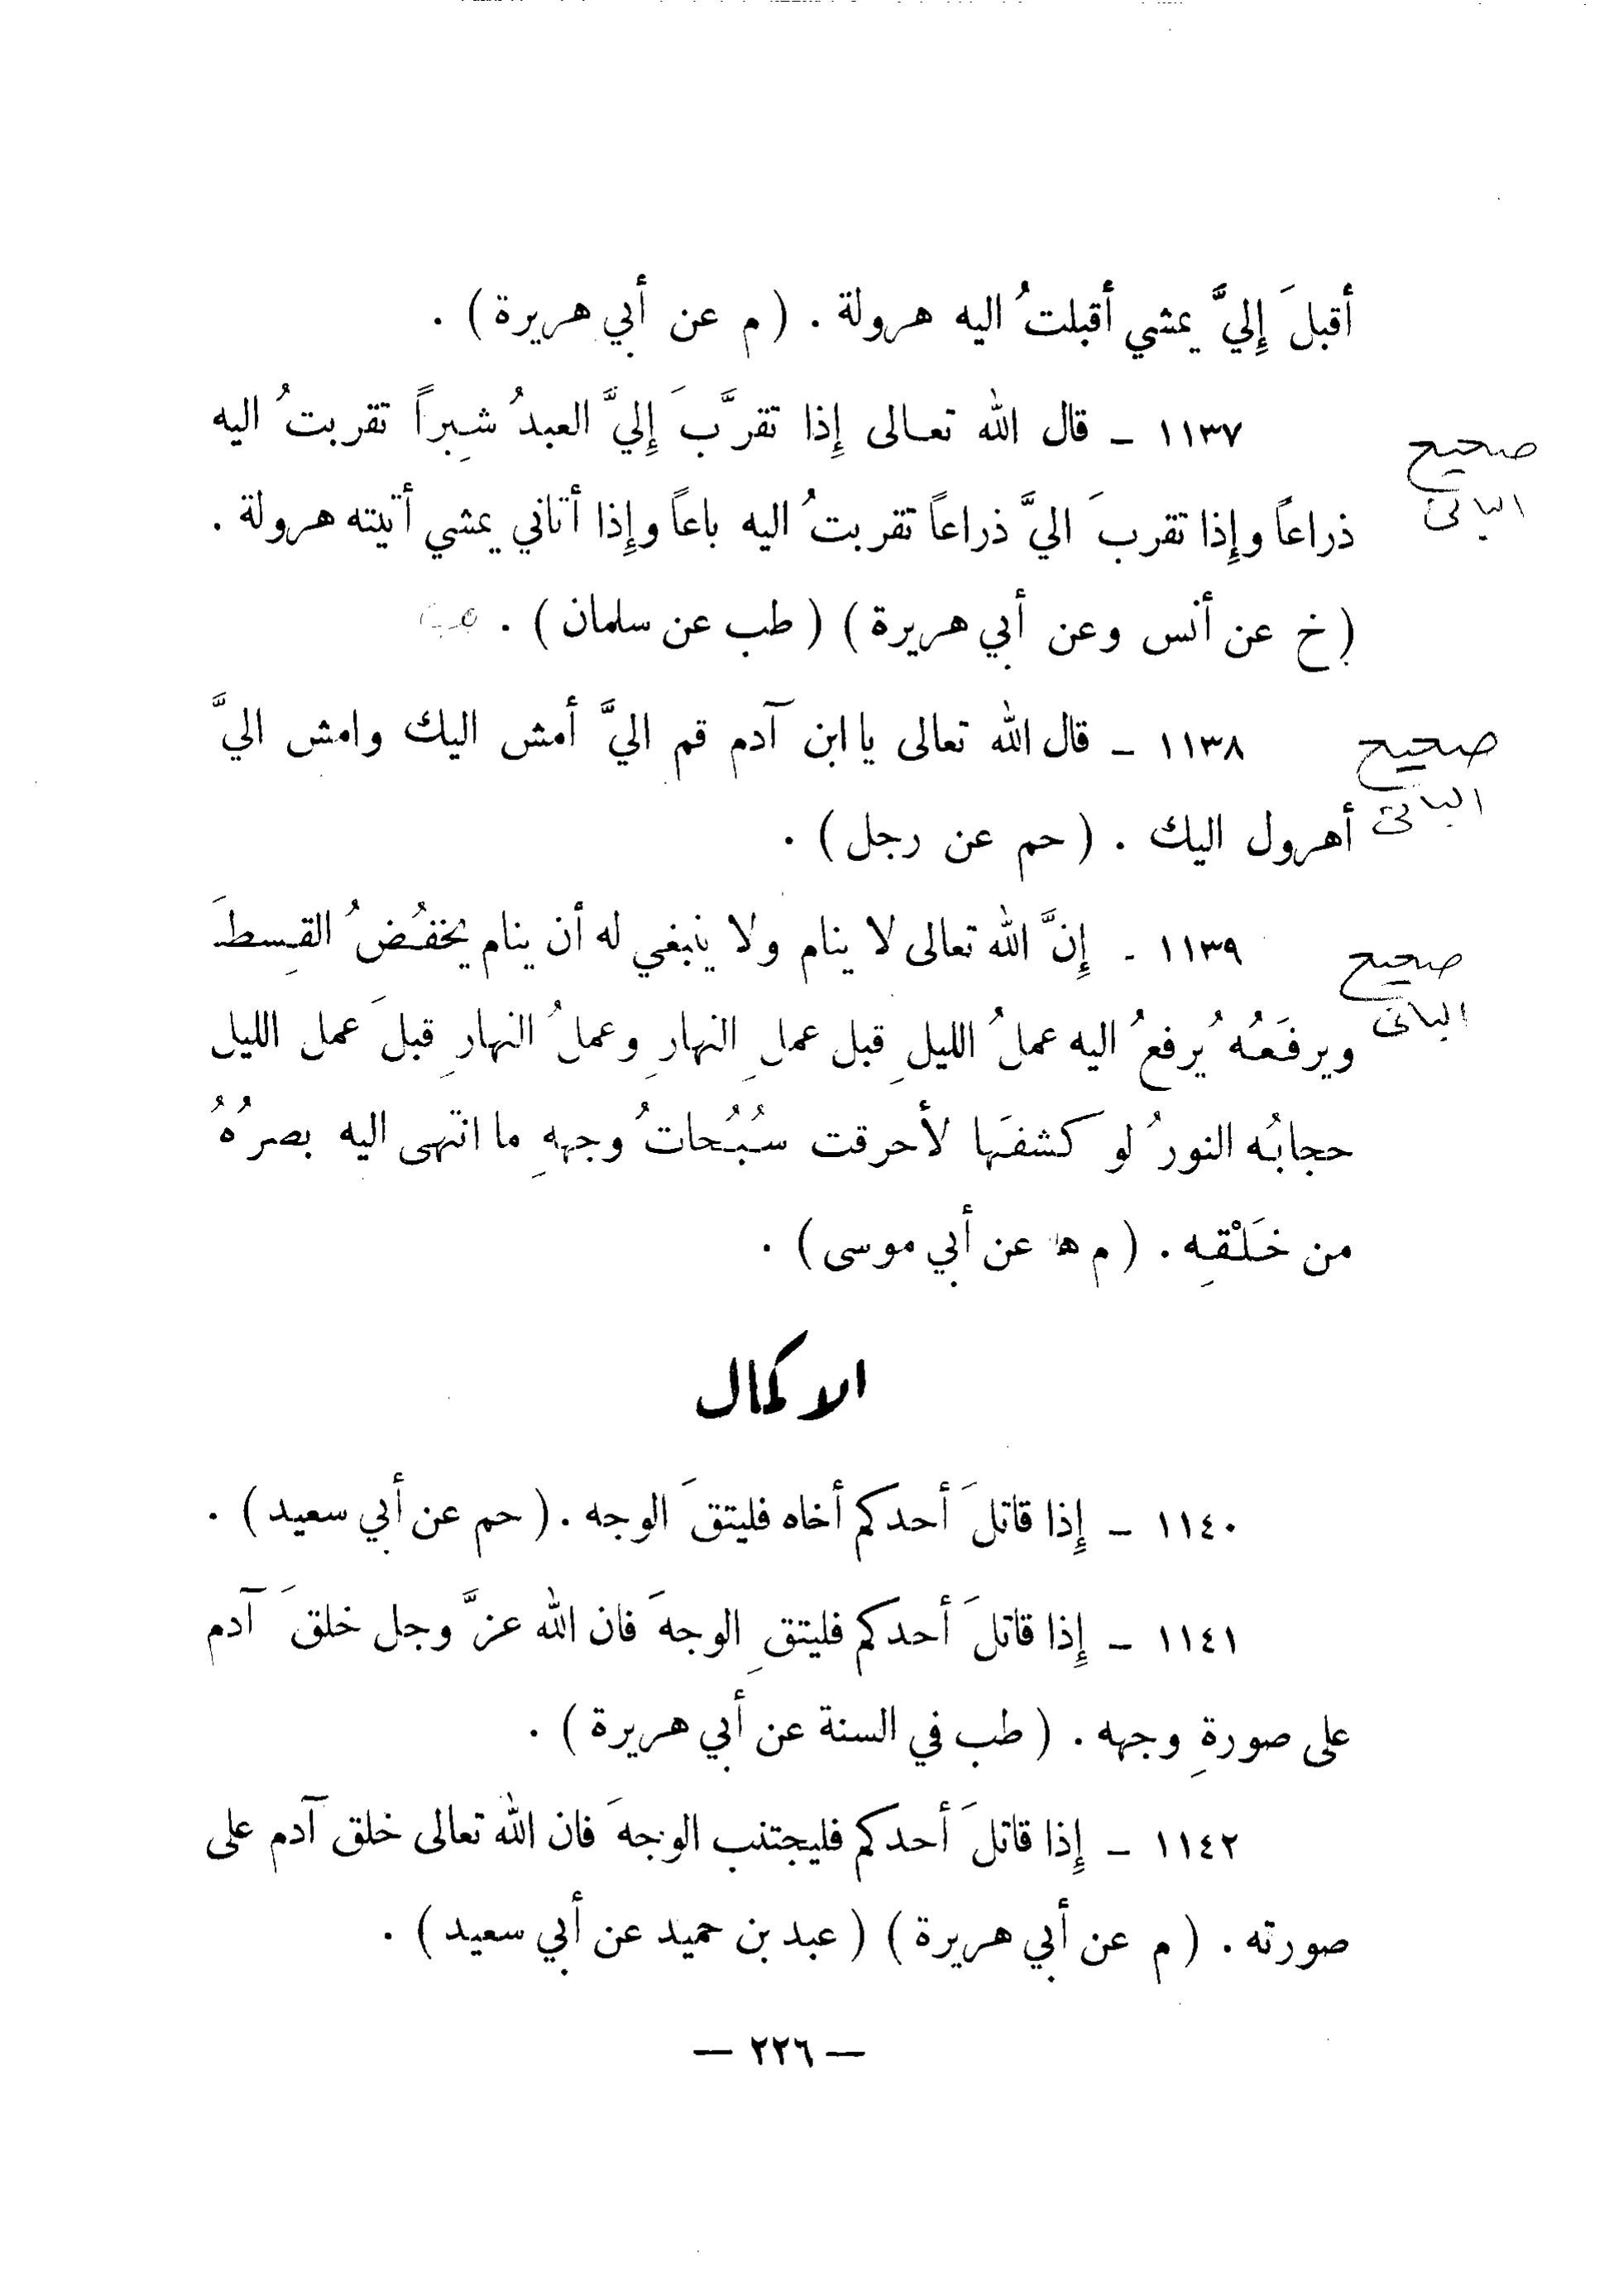 أقبلَ إِليَّ يمشي أقبلتُ اليه هرولة . ( م عن أبي هريرة ) .
١١٣٧ – قال الله تعـالى إِذا تقرَّبَ إِليَّ العبدُ شـبِراً تقربتُ اليه
صحيح
ذراعاً وإِذا تقربَ اليَّ ذراعاً تقربتُ اليه باعاً وإِذا أتاني يمشي أتيته هرولة .
البانى
( خ عن أنس وعن أبي هريرة ) ( طب عن سلمان ) .
١١٣٨ – قال الله تعالى يا ابن آدم قم اليَّ أمش اليك وامش اليَّ
صحيح
أهرول اليك . ( حم عن رجل ) .
البانى
١١٣٩ - إِنَّ الله تعالى لا ينام ولا ينبغي له أن ينام يخفـُضُ القـِسطَ
صحيح
ويرفـَعـُه يُرفعُ اليه عملُ الليلِ قبل عملِ النهارِ وعملُ النهارِ قبلَ عمل الليل
البانى
حجابـُه النورُ لو كشفـَها لأحرقت سـُبـُحاتُ وجههِ ما انتهى اليه بصرُهُ
من خـَلـْقـِه . ( م ه عن أبي موسى ) .
الاكمال
١١٤٠ – إِذا قاتلَ أحدكم أخاه فليتقَ الوجه . ( حم عن أبي سعيد ) .
١١٤١ – إِذا قاتلَ أحدكم فليتقِ الوجهَ فان الله عزَّ وجل خلقَ آدم
على صورةِ وجهه . ( طب في السنة عن أبي هريرة ) .
١١٤٢ – إِذا قاتلَ أحدكم فليجتنب الوجهَ فان الله تعالى خلق آدم على
صورته . ( م عن أبي هريرة ) ( عبد بن حميد عن أبي سعيد ) .
— ٢٢٦ —